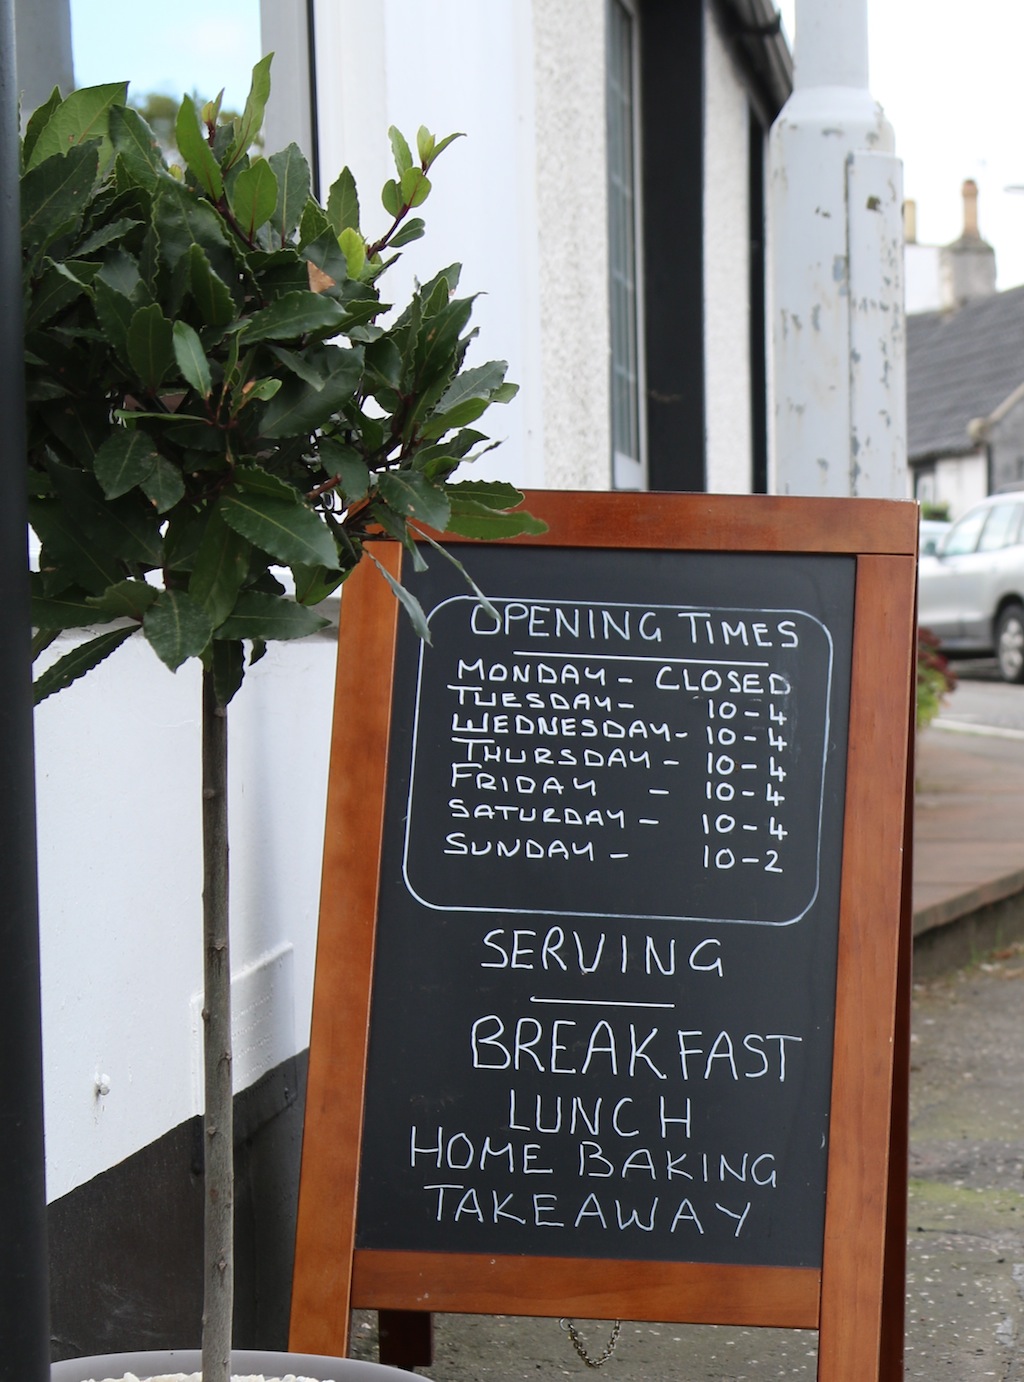 OPENING TIMES
MONDAY - CLOSED
TUESDAY - 10-4
WEDNESDAY - 10-4
THURSDAY - 10-4
FRIDAY - 10-4
SATURDAY - 10-4
SUNDAY - 10-2
SERVING
BREAKFAST
LUNCH
HOME BAKING
TAKEAWAY